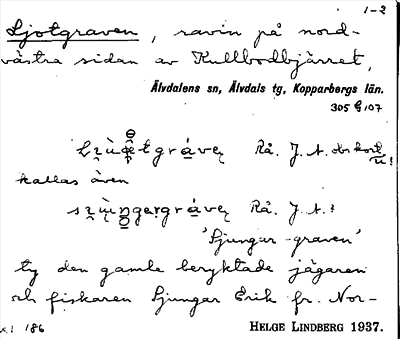 1-2
Ljotgraven, ravin på nord-
västra sidan av Kullbodbjärret,
Älvdalens sn, Älvdals tg, Kopparbergs län.
305 G 107
Rå. J. A. obs kort u!
kallas även
Rå. J. A.:
'Sjungar-graven'
ty den gamle beryktade jägaren
och fiskaren Sjungar Erik fr. Nor-
x.! 186
HELGE LINDBERG 1937.